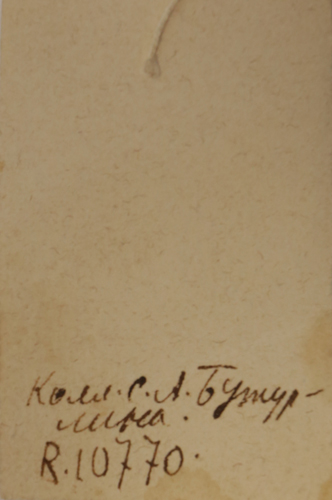 Колл. С. А. Бутур-
лина.
R.10770.